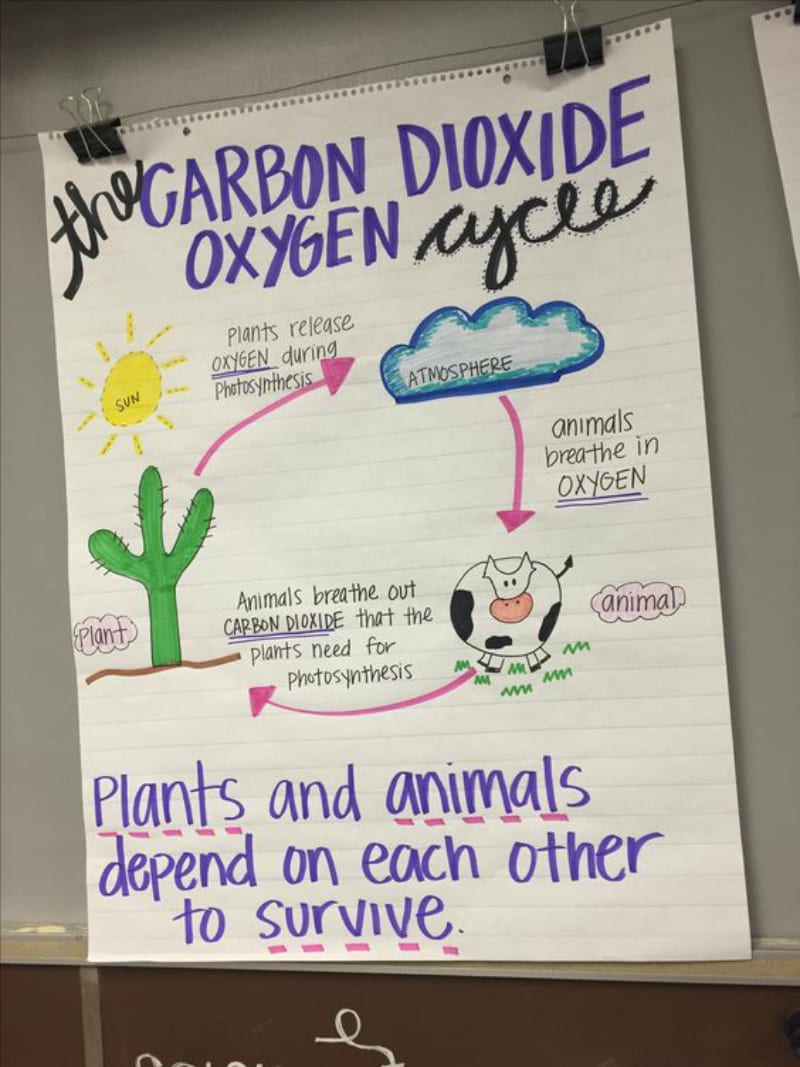 the CARBON DIOXIDE
OXYGEN cycle
SUN
Plants release
OXYGEN during
Photosynthesis
ATMOSPHERE
animals
breathe in
OXYGEN
Plant
Animals breathe out
CARBON DIOXIDE that the
plants need for
photosynthesis
animal
Plants and animals
depend on each other
to survive.